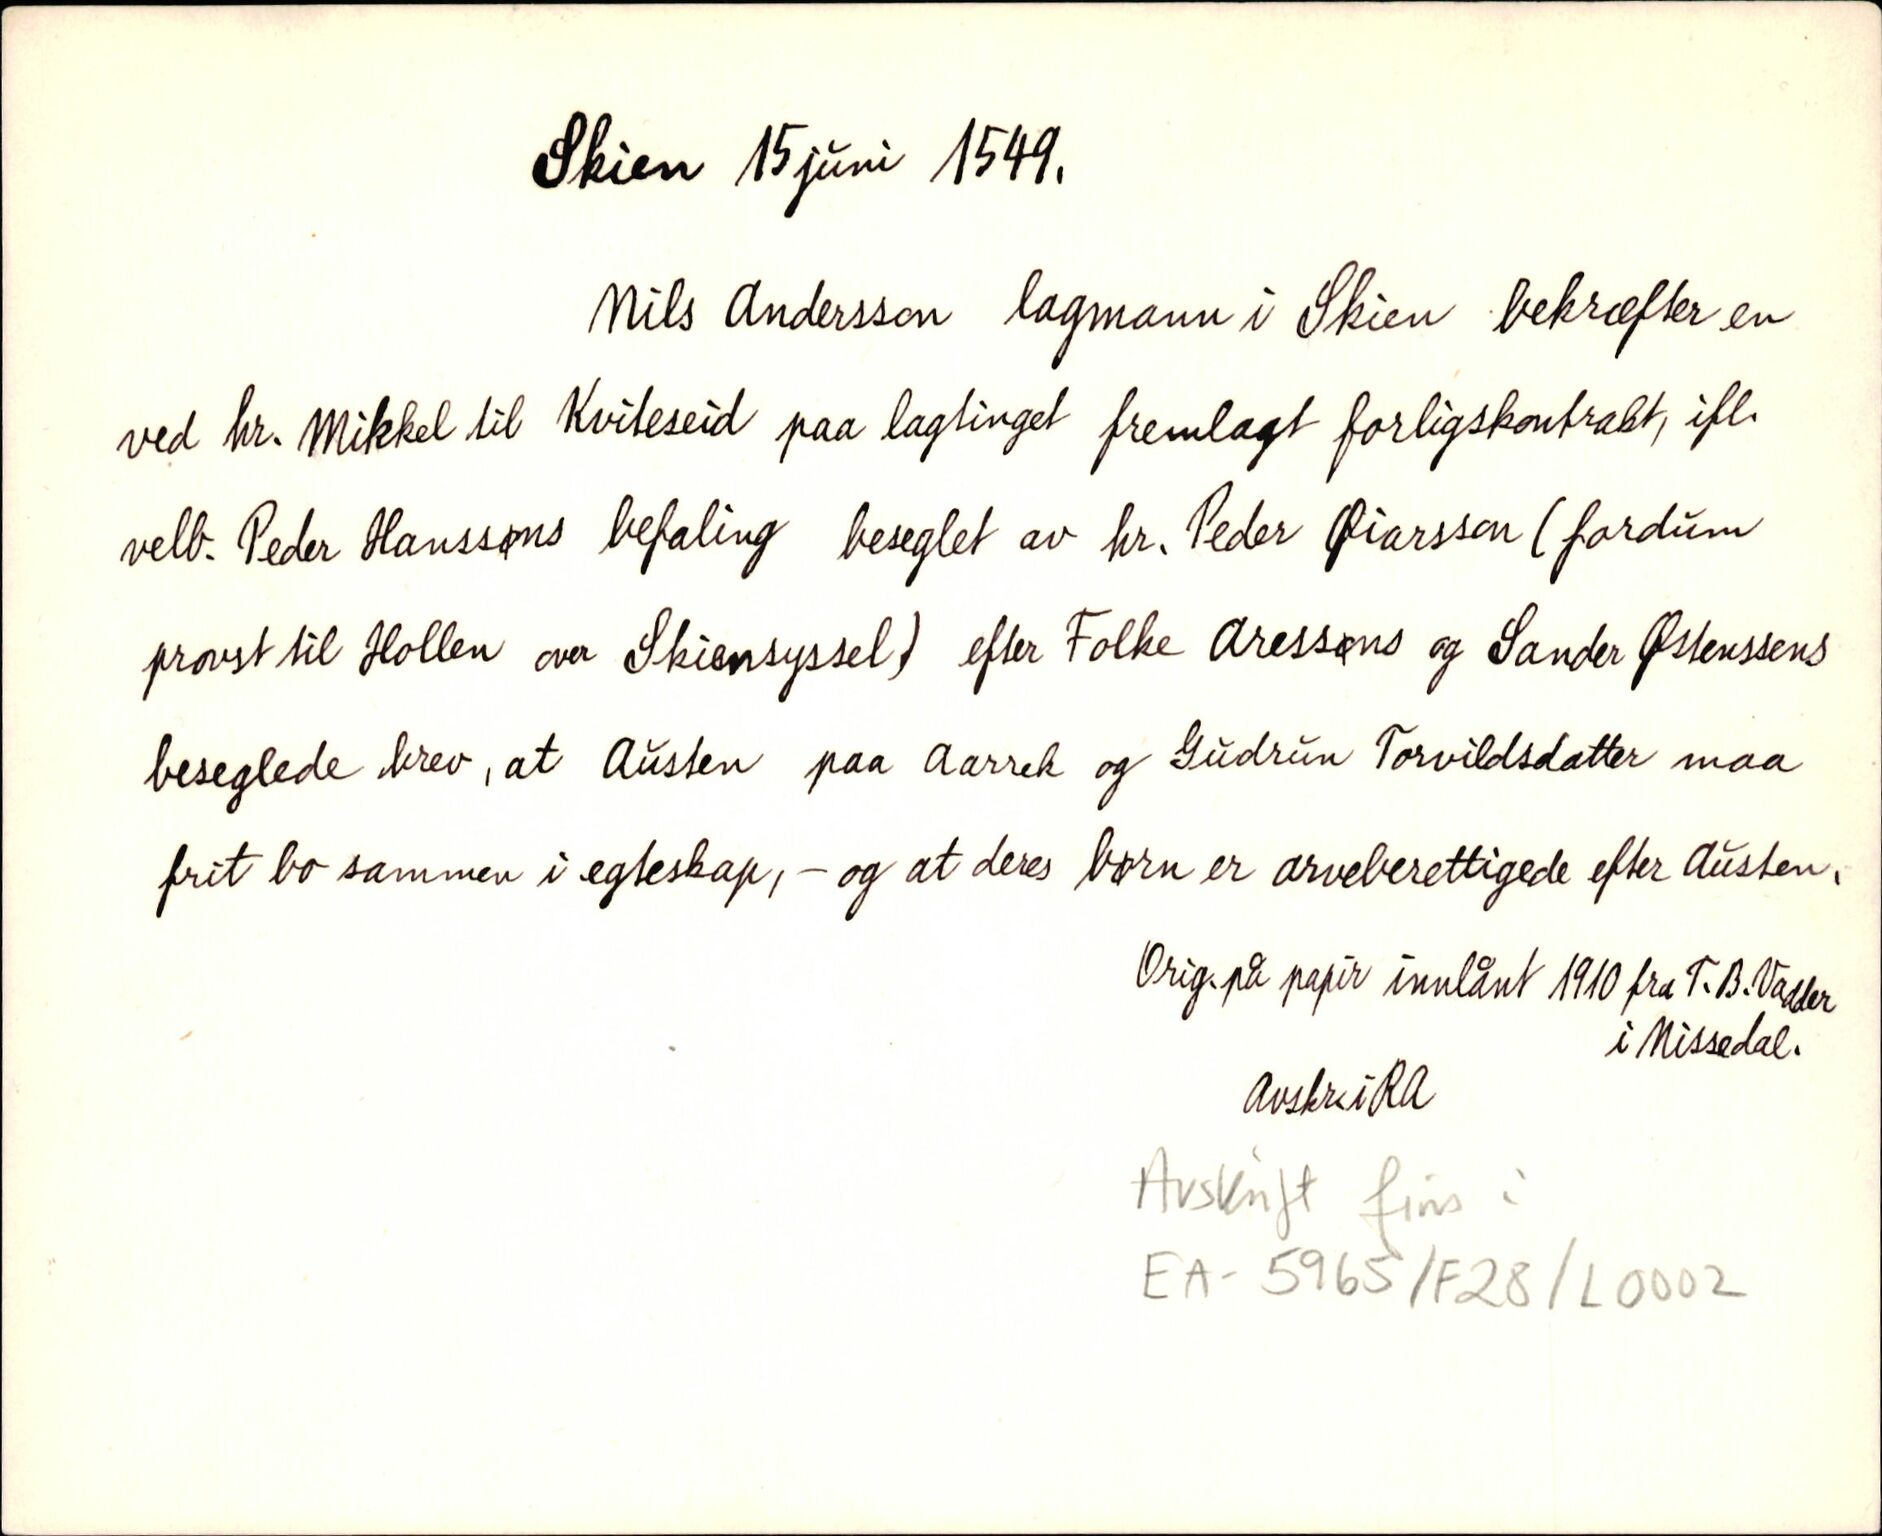 Skien 15 juni 1549.
Nils Andersson lagmann i Skien bekræfter en
ved hr. Mikkel til Kviteseid paa lagtinget fremlagt forligskontrakt, ifl.
velb. Peder Hanssøns befaling beseglet av hr. Peder Øiarsson (fordum
provst til Hollen over Skiensyssel) efter Folke Aressøns og Sander Østenssens
beseglede brev, at Austen paa Aarrek og Gudrun Torvildsdatter maa
frit bo sammen i egteskap, – og at deres børn er arveberettigede efter Austen.
Orig. på papir innlånt 1910 fra T. B. Vadder
i Nissedal.
Avskr. i RA
Avskrift fins i
EA- 5965/F28/L0002